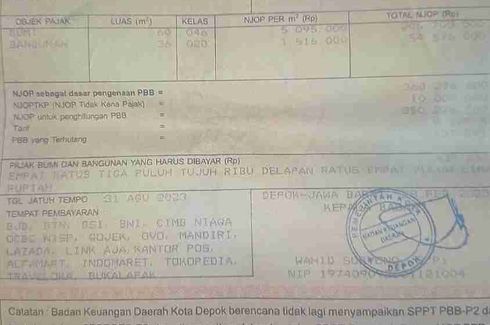 OBJEK PAJAK LUAS (m²) KELAS NJOP PER m² (Rp) TOTAL NJOP (Rp)
BUMI 60 046 5 095 000
BANGUNAN 36 020 1 516 000 54 576 000
NJOP sebagai dasar pengenaan PBB = 360 276 000
NJOPTKP (NJOP Tidak Kena Pajak) = 10 000 000
NJOP untuk penghitungan PBB = 350 276 000
Tarif =
PBB yang Terhutang =
PAJAK BUMI DAN BANGUNAN YANG HARUS DIBAYAR (Rp)
EMPAT RATUS TIGA PULUH TUJUH RIBU DELAPAN RATUS EMPAT PULUH LIMA
RUPIAH
TGL JATUH TEMPO 31 AGU 2023 DEPOK-JAWA
TEMPAT PEMBAYARAN
BJB, BTN, BSI, BNI, CIMB NIAGA
OCBC NISP, GOJEK, OVO, MANDIRI,
LAZADA, LINK AJA, KANTOR POS,
ALFAMART, INDOMARET, TOKOPEDIA,
TRAVELOKA, BUKALAPAK
PEMERINTAH
BADAN KEUANGAN
DAERAH
DEPOK
WAHID
NIP
Catatan : Badan Keuangan Daerah Kota Depok berencana tidak lagi menyampaikan SPPT PBB-P2